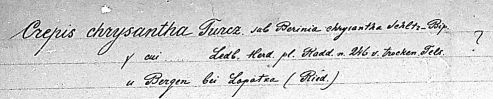 Crepis chrysantha Turcz. sub Berinia chrysantha Schltz-Bip.
γ cui Ledb. Herd. pl. Radd. n. 246 v. trocken. Fels. ?
u Bergen bei Lopatka (Ried.)